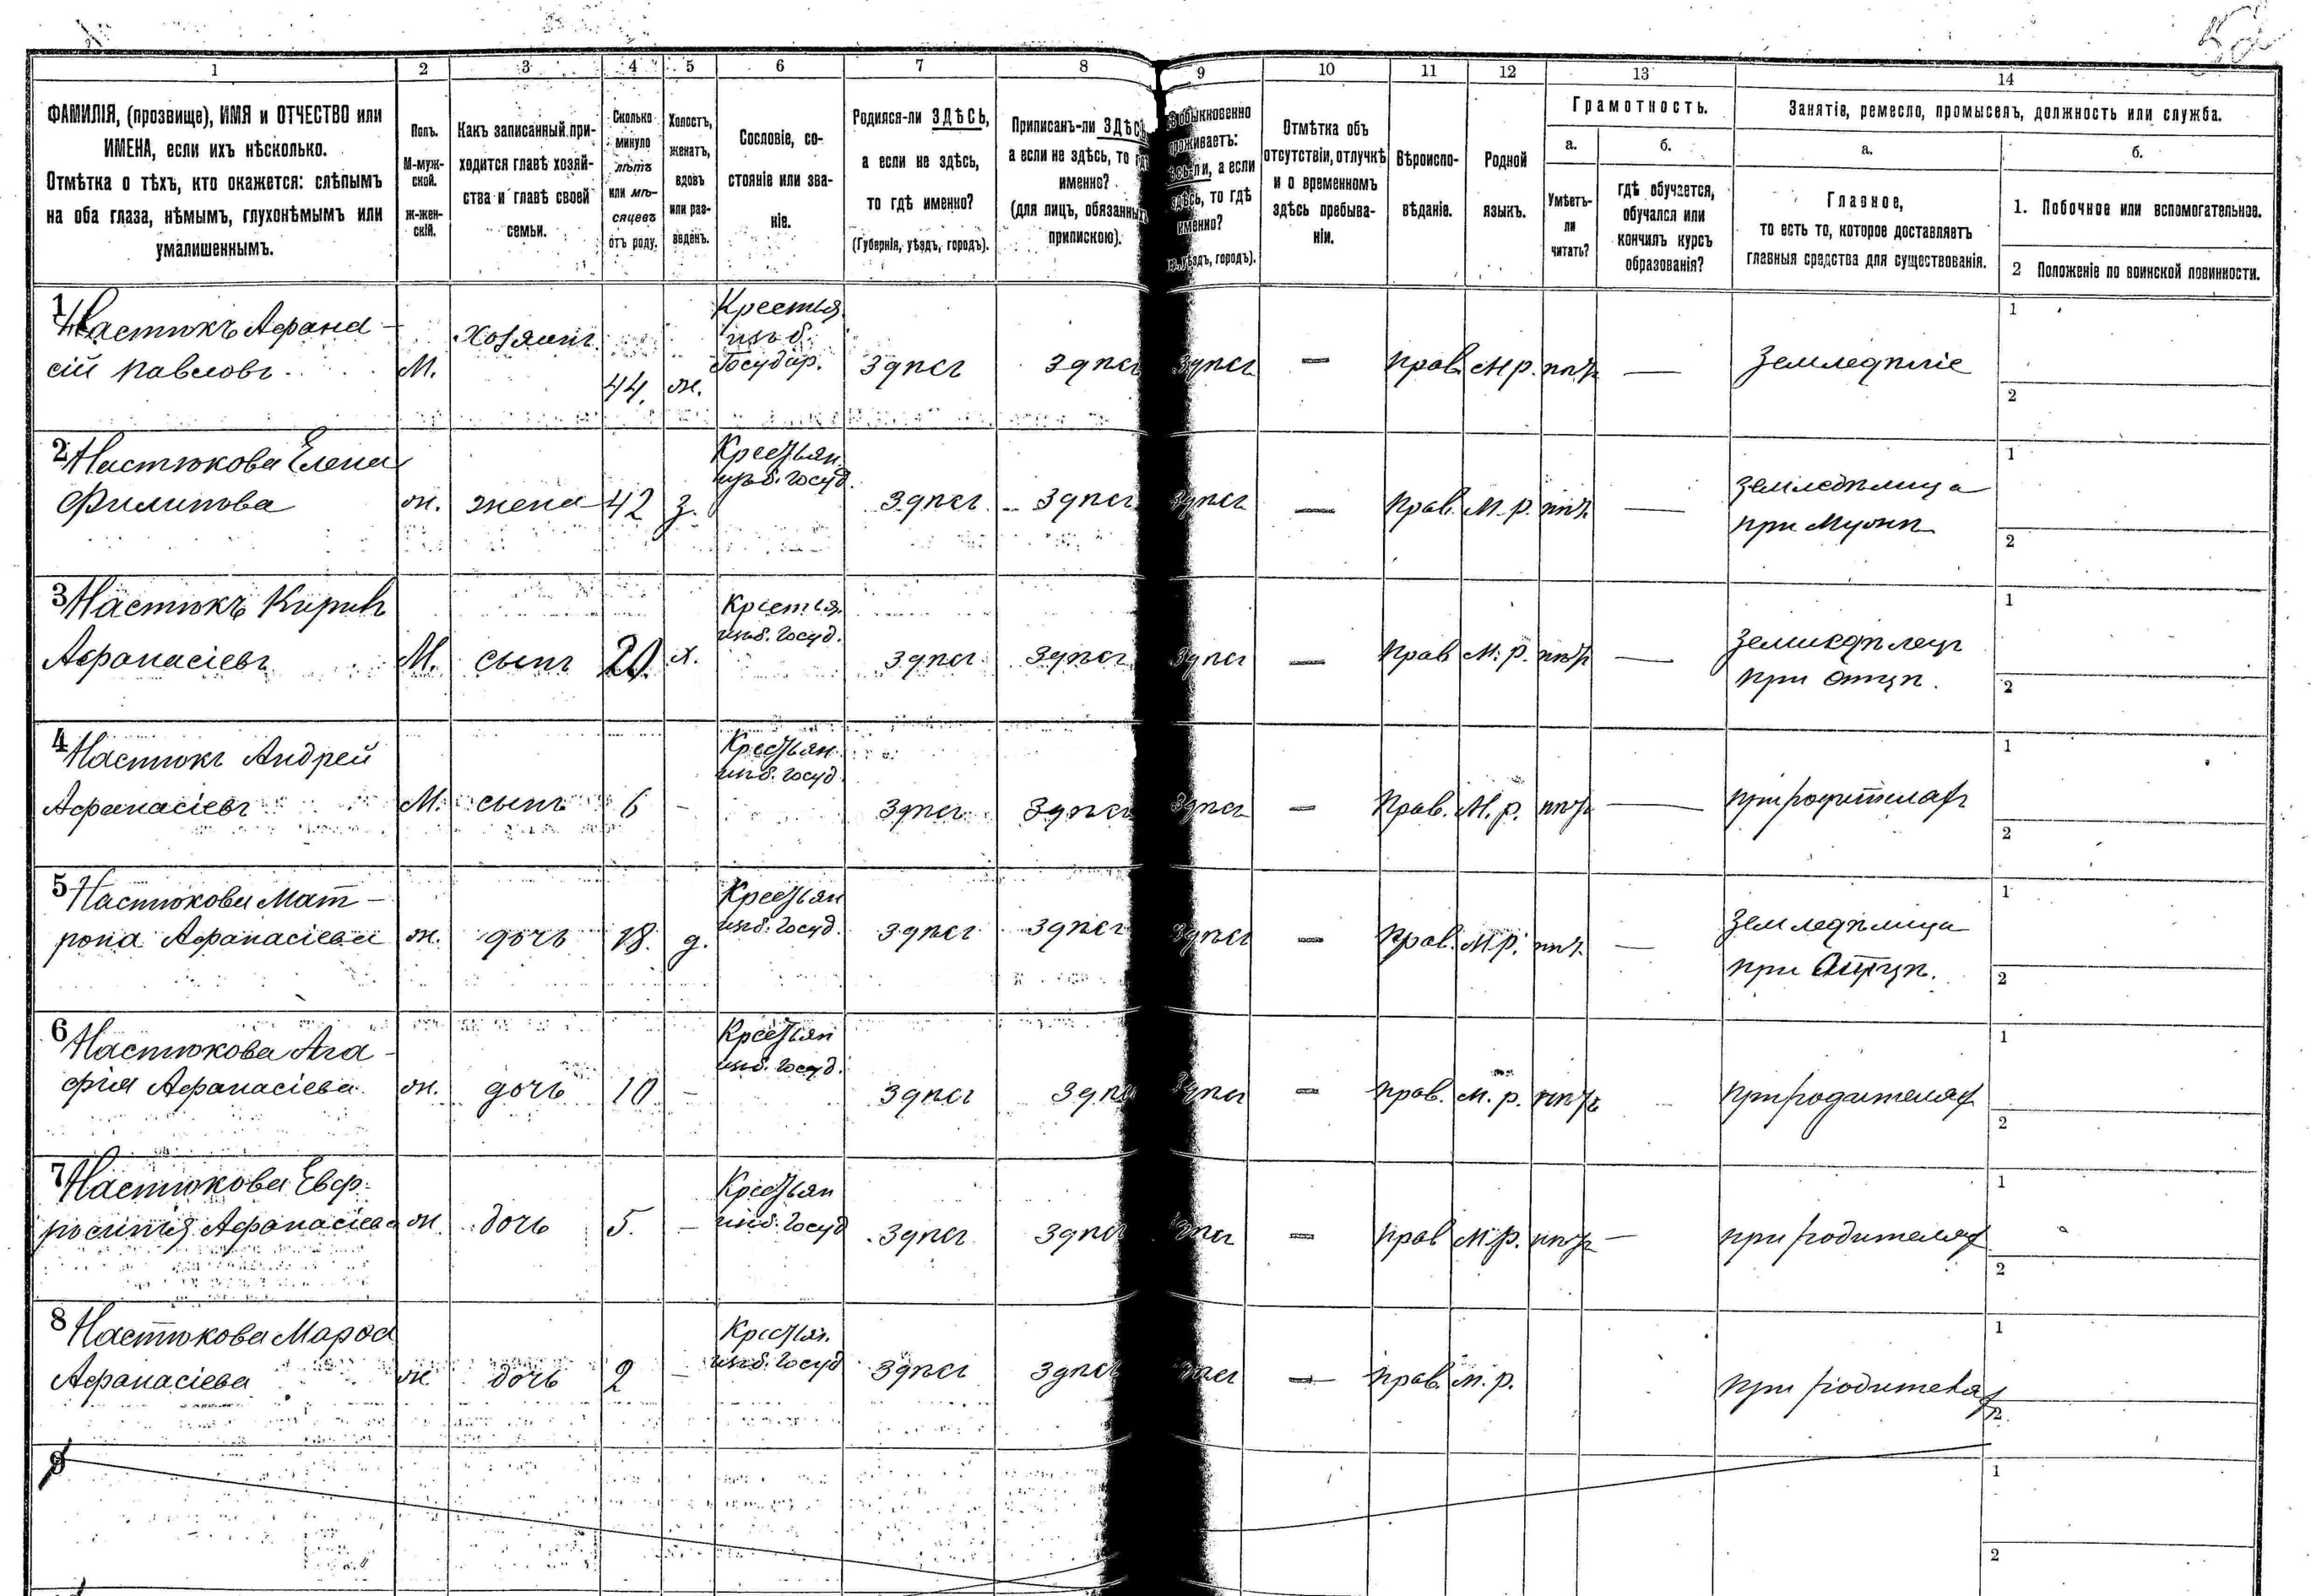 1 2 3 4 5 6 7 8 9 10 11 12 13 14
ФАМИЛІЯ, (прозвище), ИМЯ и ОТЧЕСТВО или
ИМЕНА, если ихъ нѣсколько.
Отмѣтка о тѣхъ, кто окажется: слѣпымъ
на оба глаза, нѣмымъ, глухонѣмымъ или
умалишеннымъ.
Полъ.
М-муж-
ской.
ж-жен-
скій.
Какъ записанный при-
ходится главѣ хозяй-
ства и главѣ своей
семьи.
Сколько
минуло
лѣтъ
или мѣ-
сяцевъ
отъ роду.
Холостъ,
женатъ,
вдовъ
или раз-
веденъ.
Сословіе, со-
стояніе или зва-
ніе.
Родился-ли ЗДѢСЬ,
а если не здѣсь,
то гдѣ именно?
(Губернія, уѣздъ, городъ).
Приписанъ-ли ЗДѢСЬ,
а если не здѣсь, то гдѣ
именно?
(для лицъ, обязанныхъ
припискою).
обыкновенно
проживаетъ:
ли, а если
здѣсь, то гдѣ
именно?
уѣздъ, городъ).
Отмѣтка объ
отсутствіи, отлучкѣ
и о временномъ
здѣсь пребыва-
ніи.
Вѣроиспо-
вѣданіе.
Родной
языкъ.
Грамотность.
а.
Умѣетъ-
ли
читать?
б.
гдѣ обучается,
обучался или
кончилъ курсъ
образованія?
Занятія, ремесло, промыселъ, должность или служба.
а.
Главное,
то есть то, которое доставляетъ
главныя средства для существованія.
б.
1. Побочное или вспомогательное.
2 Положеніе по воинской повинности.
1
Настюкъ Афана-
сій Павловъ
М.
Хозяинъ
44.
ж.
Крестья
изъ б.
Государ.
здѣсь
здѣсь
здѣсь
—
прав.
М р.
нѣтъ
—
Земледѣліе
1
2
2
Настюкова Елена
Филипова
ж.
жена
42
з.
Крестьян.
изъ б. Госуд.
здѣсь
здѣсь
здѣсь
—
прав.
М. р.
нѣтъ
—
земледѣлица
при Мужѣ
1
2
3
Настюкъ Кирилъ
Афанасіевъ
М.
сынъ
20.
х.
Крестья.
изъ б. Госуд.
здѣсь
здѣсь
здѣсь
—
прав
М. р.
нѣтъ
—
Земледѣлецъ
при отцѣ.
1
2
4
Настюкъ Андрей
Афанасіевъ
М.
сынъ
6
-
Крестьян.
изъ б. Госуд.
здѣсь
здѣсь
здѣсь
—
прав.
М. р.
нѣтъ
—
при родителяхъ
1
2
5
Настюкова Мат-
рона Афанасіева
ж.
дочь
18.
д.
Крестьян
изъ б. Госуд.
здѣсь
здѣсь
здѣсь
—
прав.
М р.
нѣт.
—
Земледѣлица
при Отцѣ.
1
2
6
Настюкова Ага-
фія Афанасіева
ж.
дочь
10
-
Крестьян
изъ б. Госуд.
здѣсь
здѣсь
здѣсь
—
прав.
М. р.
нѣтъ
при родителях
1
2
7
Настюкова Евф-
росинія Афанасіева
ж
дочь
5.
-
Крестьян
изъ б. Госуд
здѣсь
здѣсь
здѣсь
—
прав
М. р.
нѣтъ
—
при родителях
1
2
8
Настюкова Марфа
Афанасіева
ж
дочь
2
-
Крестьян.
изъ б. Госуд
здѣсь
здѣсь
здѣсь
—
прав.
М. р.
при родителях
1
2
9
1
2